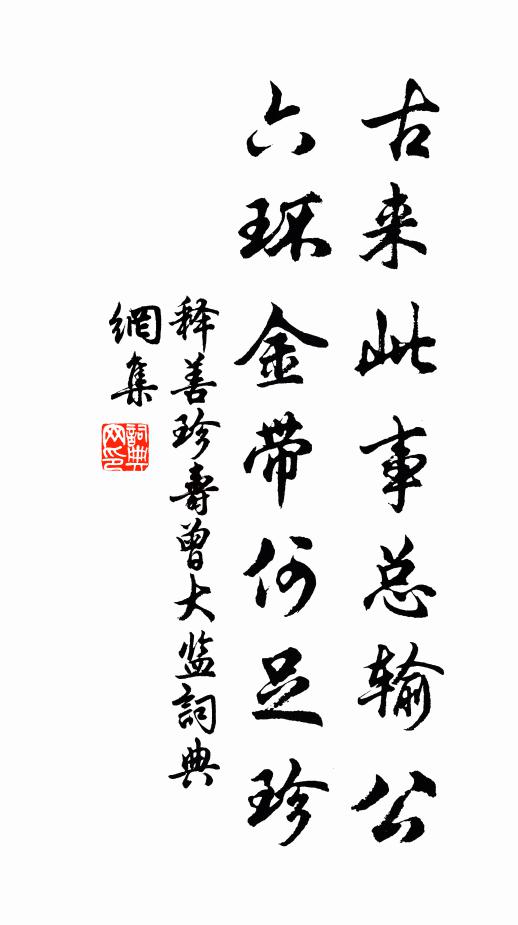 古来此事总输公
六环金带何足珍
释善珍寿曾大监詞典
網集
詞典
网印